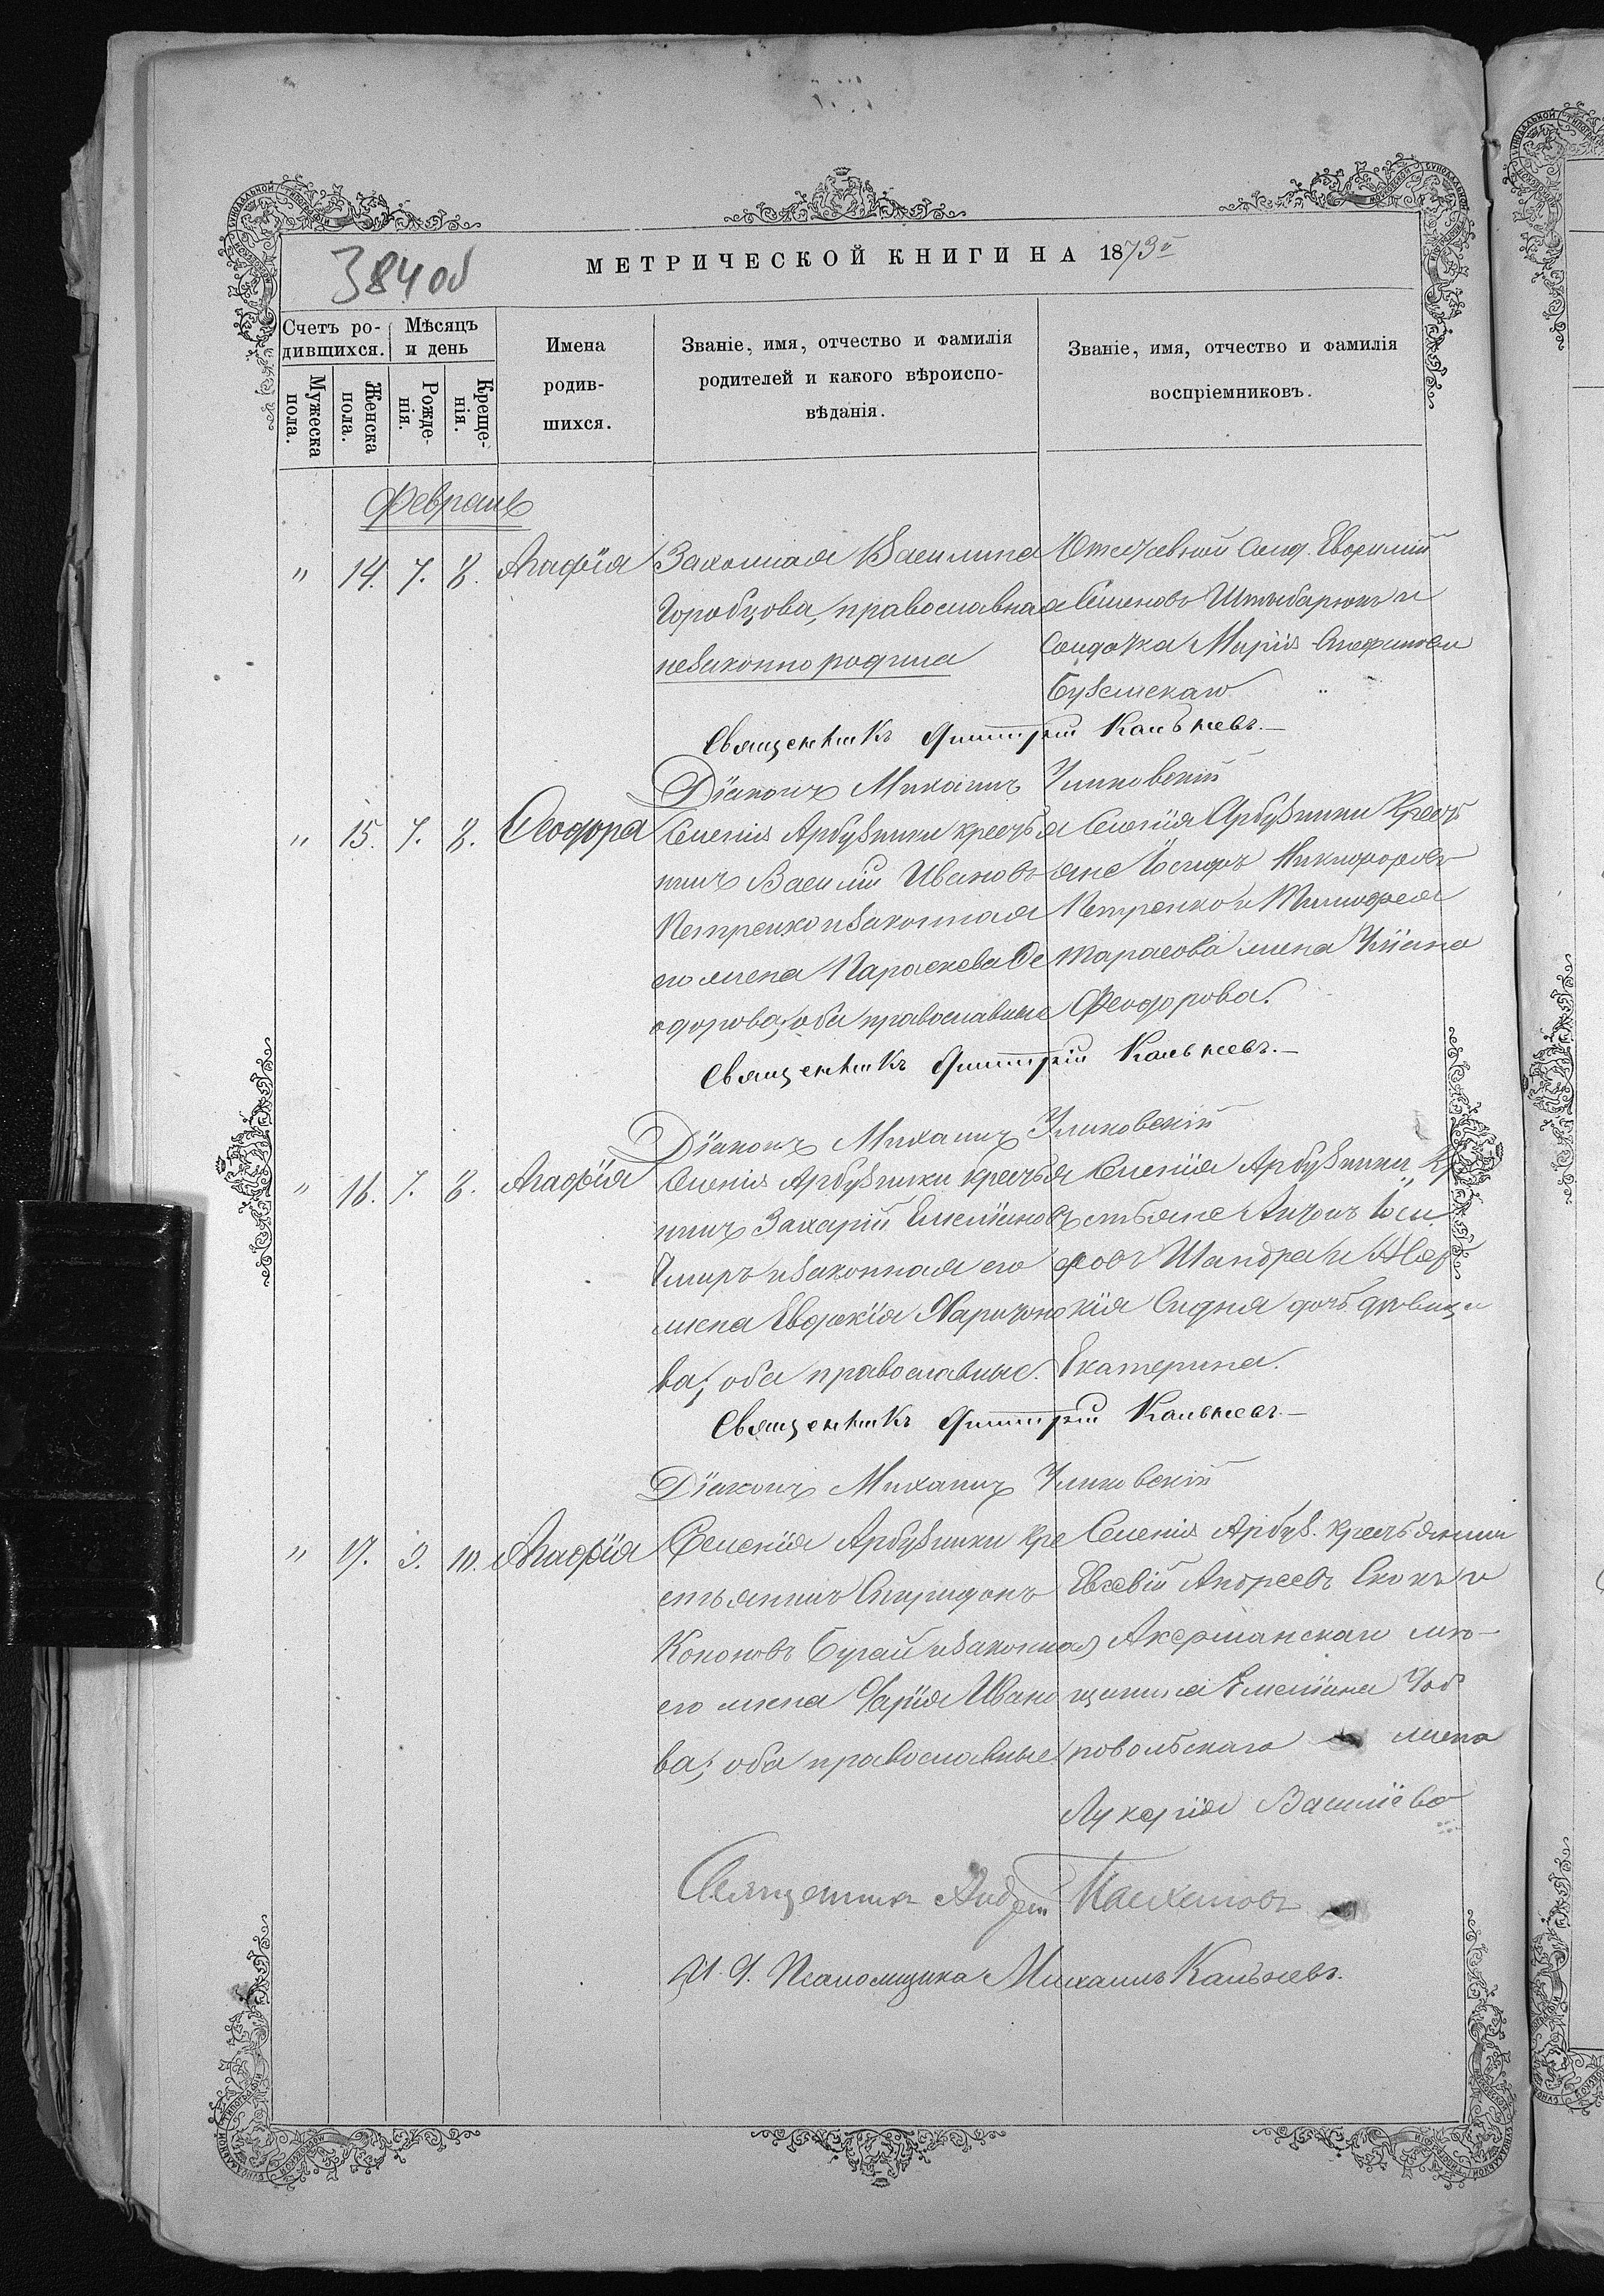 384 об
МЕТРИЧЕСКОЙ КНИГИ НА 1873й
Счетъ ро-
дившихся.
Мѣсяцъ
и день
Мужеска
пола.
Женска
пола.
Рожде-
нія.
Креще-
нія.
Имена
родив-
шихся.
Званіе, имя, отчество и фамилія
родителей и какого вѣроиспо-
вѣданія.
Званіе, имя, отчество и фамилія
воспріемниковъ.
Февраль
" 14. 7. 8. Агафія
Василина
Горобцова, православная
незаконно родила
Солд. Евфимій
Семеновъ и
Солдатка Марія
Священникъ Димитрій Кальневъ.—
Діаконъ Михаилъ
" 15. 7. 8. Ѳеодора
Селенія Арбузинки крестья
нинъ Василій Ивановъ
Петренко и законная
его жена Параскева Ѳе
одорова, оба православные
Селенія Арбузинки Крест
яне Іосифъ Никифоровъ
Петренко и Тимофея
Тарасова жена
Феодорова.
Священникъ Димитрій Кальневъ.—
Діаконъ Михаилъ
" 16. 7. 8. Агафія
Селенія Арбузинки крестья
нинъ Захарій Емеліановъ
и законная его
жена Евфкія Харитоно
ва, оба православные.
Селенія Арбузинки, Кр
естьяне Антонъ Іоси
фовъ Шандра и
кія Сидня дочь дѣвица
Екатерина.
Священникъ Димитрій Кальневъ.—
Діаконъ Михаилъ
" 17. 9. 10. Агафія
Селенія Арбузинки кре
стьянинъ Спиридонъ
Кононовъ Бугай и законная
его жена Дарія Ивано
ва, оба православные
Селенія Арбуз. крестьянин
Евсевій Андреевъ и
Акерманскаго мѣ-
щанина Емеліана Доб
ровольскаго жена
Лукерія Василіева
Священникъ Андрей
И. д. Псаломщика Михаилъ Кальневъ.